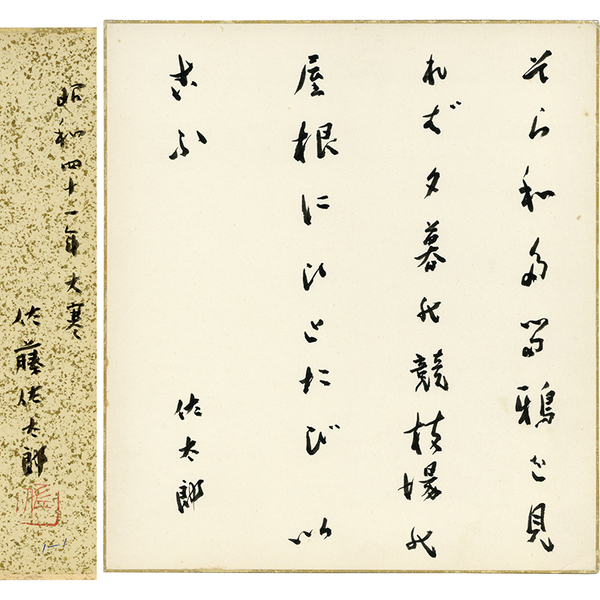 そら和多る鴉を見
れば夕暮の競技場の
屋根にひとたび以
こふ
佐太郎
昭和四十一年大寒
佐藤佐太郎